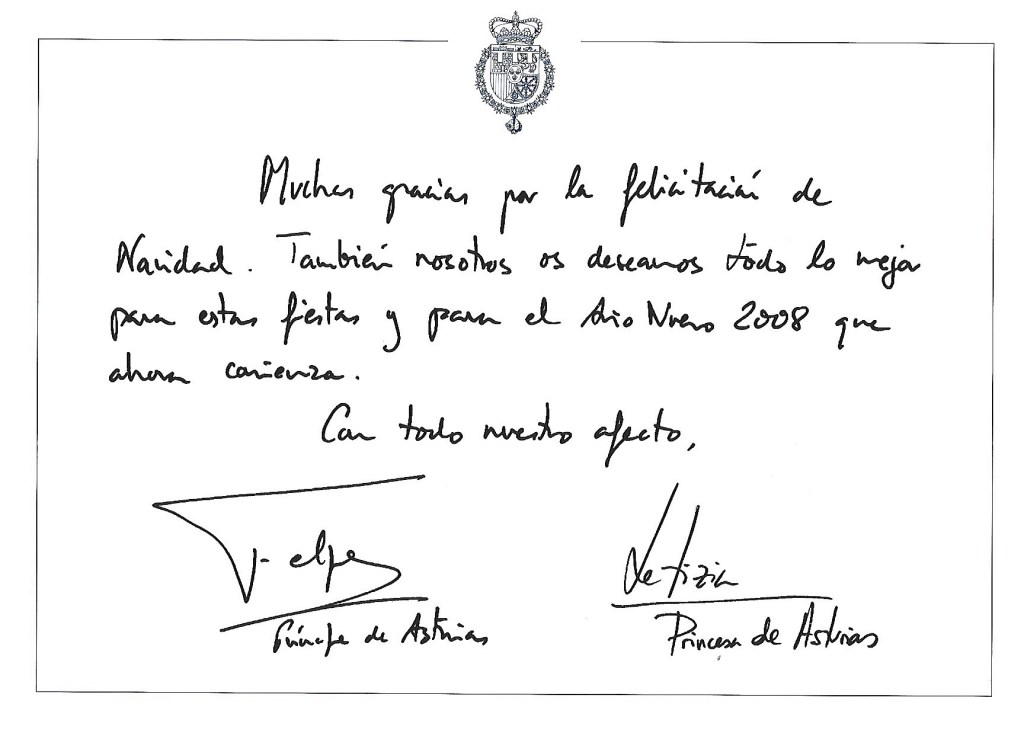 Muchas gracias por la felicitación de
Navidad. También nosotros os deseamos todo lo mejor
para estas fiestas y para el Año Nuevo 2008 que
ahora comienza.
Con todo nuestro afecto,
Felipe Letizia
Príncipe de Asturias Princesa de Asturias